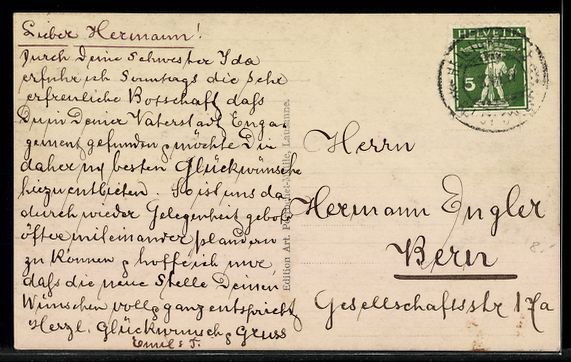 Lieber Hermann!
Durch Deine Schwester Ida
erfuhr ich Sonntags die sehr
erfreuliche Botschaft daß
Du in Deiner Vaterstadt Enga-
gement gefunden & möchte Dir
daher m. besten Glückwünsche
hiezu entbieten. So ist uns da-
durch wieder Gelegenheit geboten
öfter miteinander plaudern
zu können & hoffe ich nur
daß die neue Stelle Deinen
Wünschen voll & ganz entspricht
Herzl. Glückwunsch & Gruss
Emil & F.
Edition Art. Lausanne.
HELVETIA
5
Herrn
Hermann Engler
Bern
Gesellschaftsstr 17a
8.-